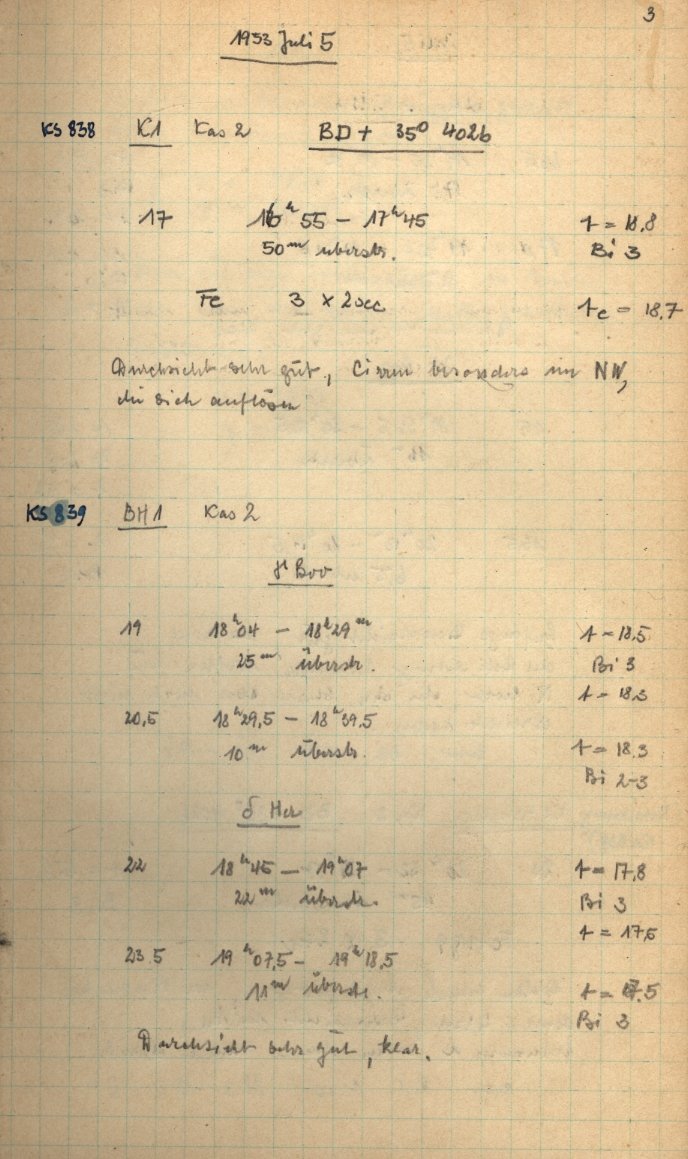 3
1953 Juli 5
KS 838 K1 Kas 2 BD + 35° 4026
17 16ʰ 55 – 17ʰ 45 t = 18,8
50ᵐ überstr. Bi 3
Fe 3 × 2 sec tc = 18,7
Durchsicht sehr gut, Cirren besonders im NW,
die sich auflösen
KS 839 BH1 Kas 2
Boo
19 18ʰ04 – 18ʰ29ᵐ t = 18,5
25ᵐ überstr. Bi 3
t = 18,3
20,5 18ʰ29,5 – 18ʰ39,5
10ᵐ überstr. t = 18,3
Bi 2-3
δ Her
22 18ʰ45 – 19ʰ07 t = 17,8
22ᵐ überstr. Bi 3
t = 17,5
23.5 19ʰ07,5 – 19ʰ18,5
11ᵐ überstr. t = 17.5
Bi 3
Durchsicht sehr gut, klar.